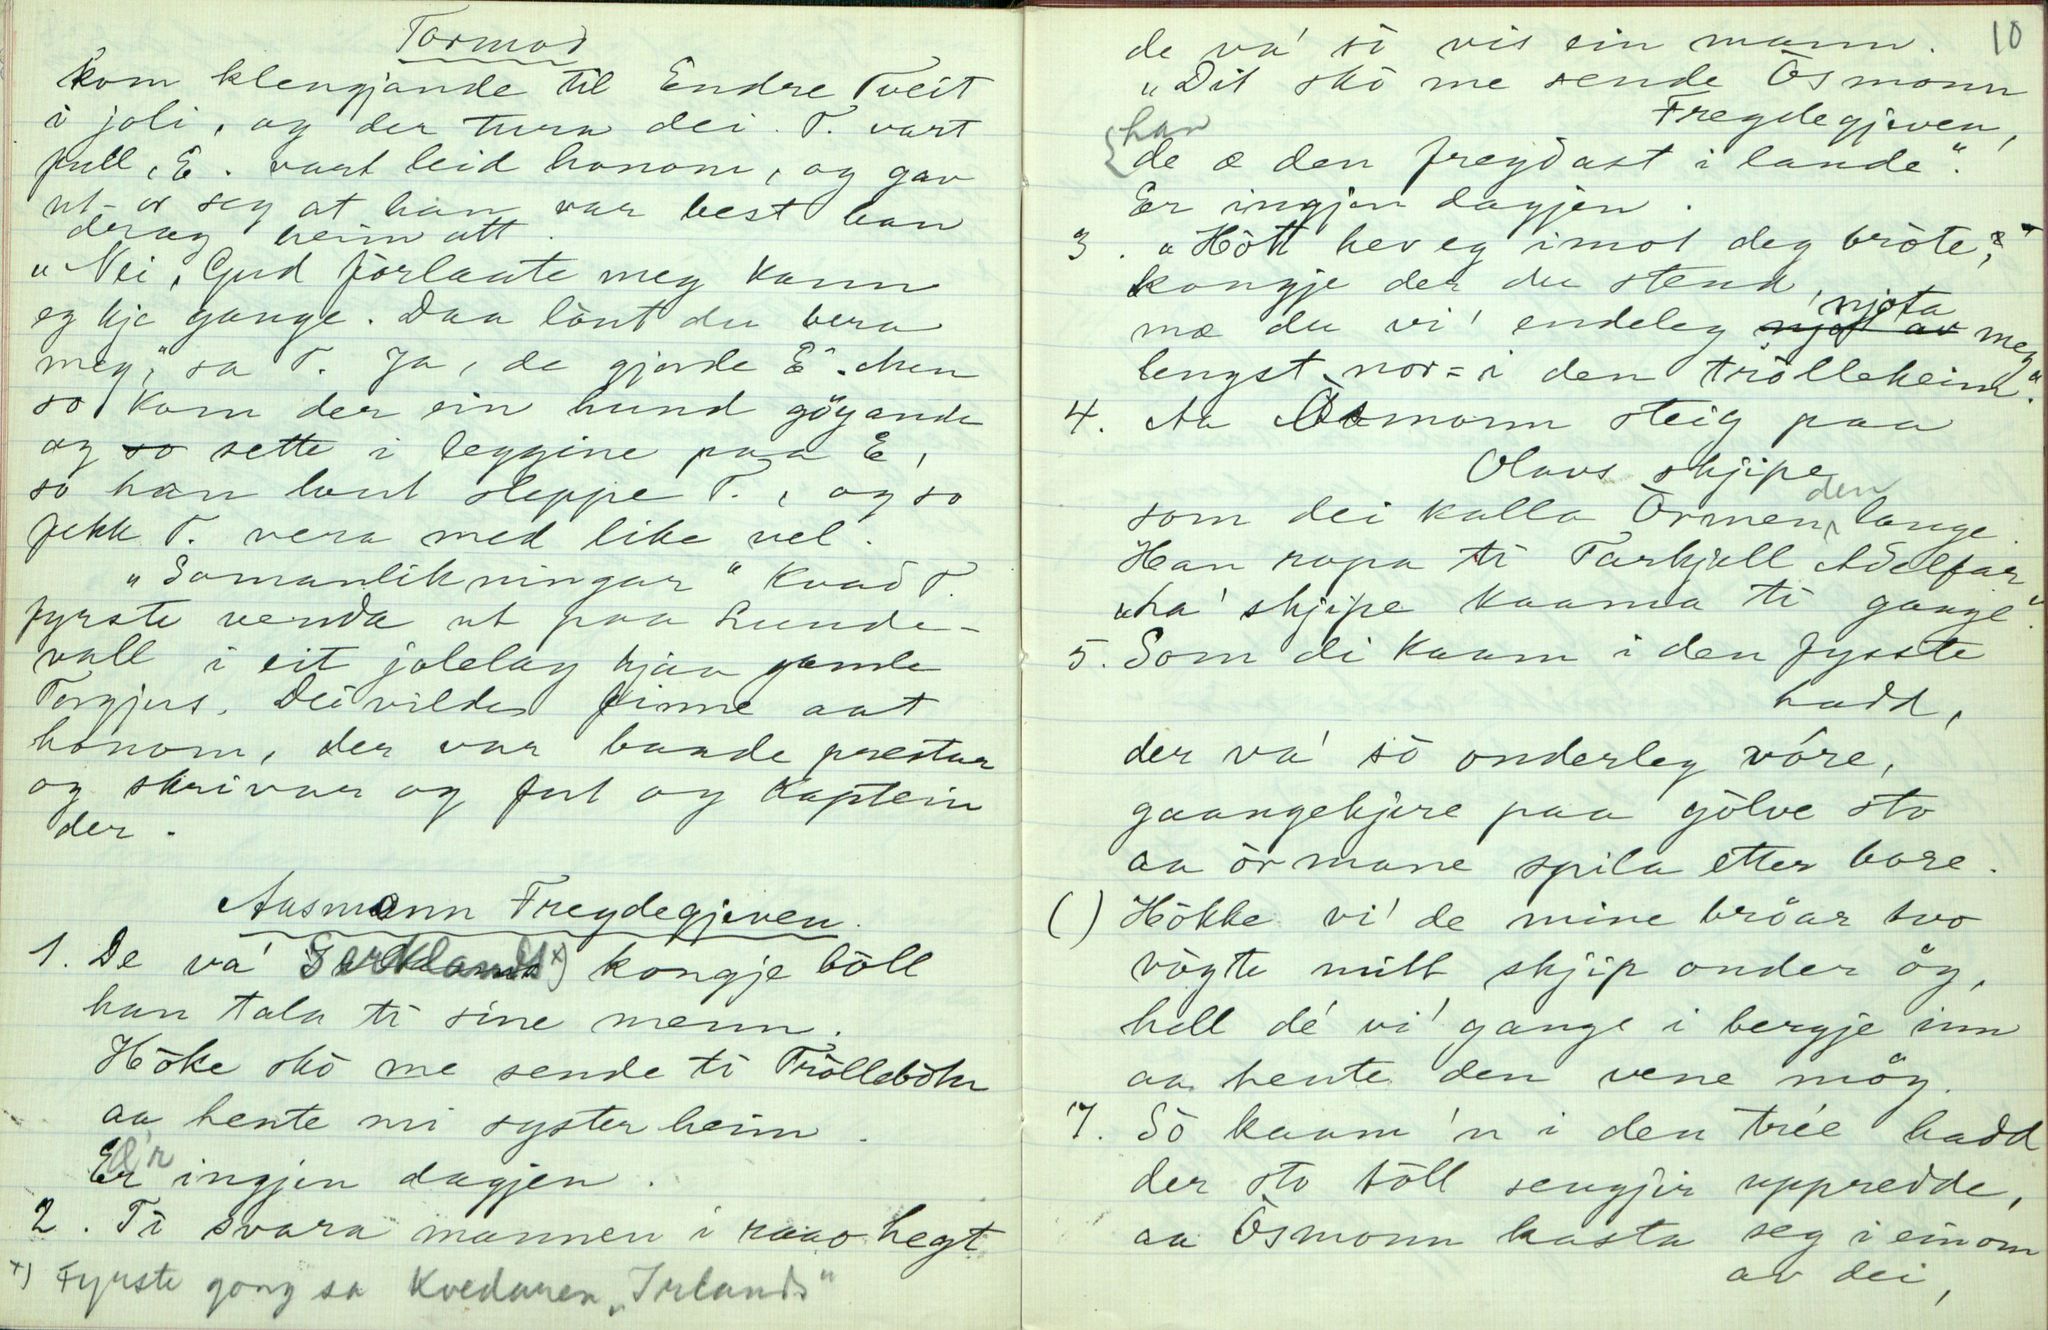 Tormod
kom klengjande til Endre Tveit
i joli, og der tura dei. T. vart
full, E. vart leid honom, og gav
ut-or seg at han var best han
drog heim att.
"Nei, Gud forlaate meg kann
eg kje gange. Daa lònt du bera
meg," sa T. Ja, de gjorde E. Men
so kom der ein hund göyande
og so sette i leggine paa E,
so han lont sleppe T., og so
fekk T. vera med like vel.
"Somanlikningar" kvad T.
fyrste venda ut paa Lunde-
vall i eit jolelag hjaa gamle
Torgjus. Dei vilde finne aat
honom, der var baade prestar
og skrivar og fut og kaptein
der.
Aasmonn Fregdegjeven.
1. De va' Serklands x) kongje böll
han tala ti sine menn.
Hòke skò me sende ti Tròllebòtn
aa hente mi syster heim.
Er Æ'r ingjen dagjen.
2. Ti svara mannen i raao hegt
x) Fyrste gong sa kvedaren "Irlands"
10
de va' sò vis ein mann.
"Dit skò me sende Òsmonn
Fregdegjeven,
{han
de æ den fregdast i lande".
Er ingjen dagjen.
3. "Hòtt hev eg imot deg bròte,
kongje der du stend,
njota
mæ du vi' endeleg njot av meg
lengst nor-i den tròlleheim".
4. Aa Òsmonn steig paa
Olavs skjipe
den
som dei kalla Òrmen lange.
Han ropa ti Tarkjell Adelfar
"ha' skjipe kaama ti gange".
5. Som di kaam i den fysste
hadd,
der va' sò onderleg vóre,
gaangekjere paa gòlve sto
aa òrmane spila etter bore.
() Hòkke vi' de mine bröar tvo
vògte mitt skjip onder öy,
hell dé vi' gange i bergje inn
aa hente den vene möy.
7. Sò kaam 'n i den trée hadd
der sto tòll sengjir uppredde,
aa Òsmonn kasta seg i einom
av dei,